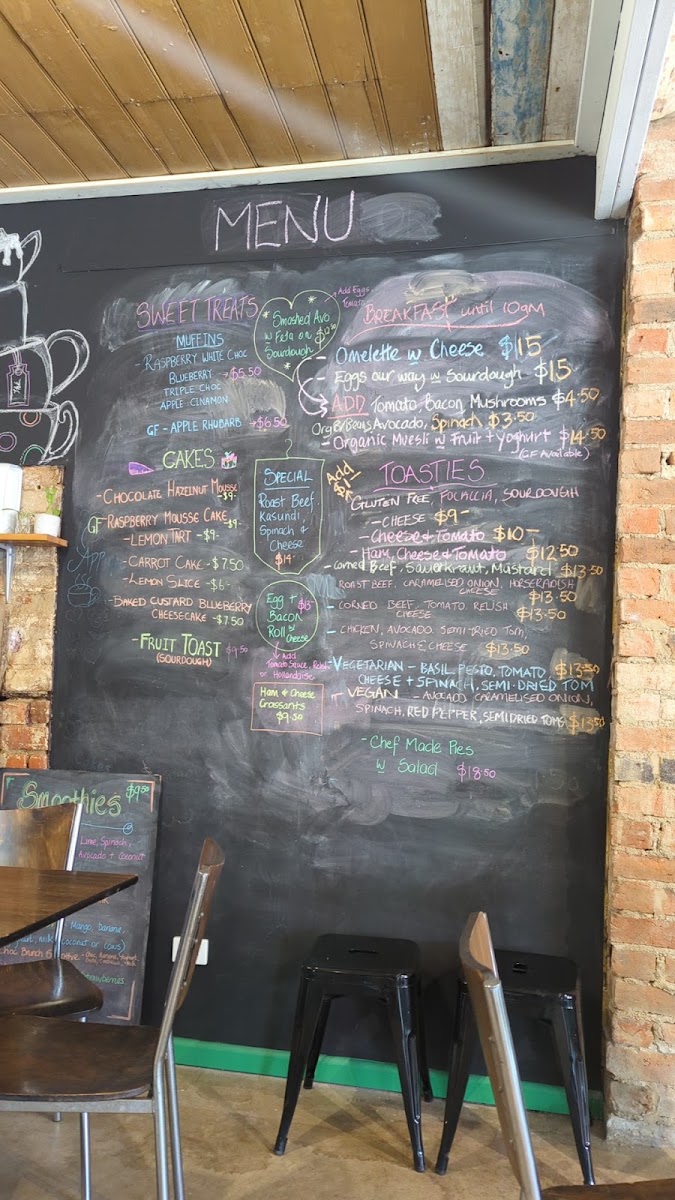 MENU
SWEET TREATS
MUFFINS
- RASPBERRY WHITE CHOC
BLUEBERRY - $5.50
TRIPLE CHOC
APPLE CINAMON
GF - APPLE RHUBARB - $6.50
CAKES
- CHOCOLATE HAZELNUT MOUSSE - $9-
GF RASPBERRY MOUSSE CAKE - $9-
- LEMON TART - $9-
- CARROT CAKE - $7.50
- LEMON SLICE - $6-
- BAKED CUSTARD BLUEBERRY
CHEESECAKE - $7.50
- FRUIT TOAST $9.50
(SOURDOUGH)
Add Eggs,
Tomato
Smashed Avo
w Feta on
Sourdough
SPECIAL
Roast Beef
Kasundi,
Spinach &
Cheese
$14-
Add
$1-
Egg +
Bacon
Roll w/ Cheese
Add
Tomato Sauce, Relish
or Hollandaise
Ham & Cheese
Crossants
$9.50
BREAKFAST until 10am
- Omelette w Cheese $15
- Eggs our way w Sourdough - $15
ADD Tomato, Bacon, Mushrooms $4.50
Avocado, Spinach $3.50
- Organic Muesli w Fruit + yoghurt $14.50
(GF Available)
TOASTIES
GLUTEN FREE, FOCACCIA, SOURDOUGH
- CHEESE $9-
- Cheese & Tomato $10-
- Ham, Cheese & Tomato $12.50
- Corned Beef, Sauerkraut, Mustard $13.50
ROAST BEEF, CARAMELISED ONION, HORSERADISH
CHEESE $13.50
- CORNED BEEF, TOMATO RELISH
CHEESE $13.50
- CHICKEN, AVOCADO, SEMI-DRIED TOM,
SPINACH & CHEESE $13.50
- VEGETARIAN - BASIL PESTO, TOMATO, $13.50
CHEESE + SPINACH, SEMI-DRIED TOM
- VEGAN - AVOCADO, CARAMELISED ONION,
SPINACH, RED PEPPER, SEMIDRIED TOMS $13.50
- Chef Made Pies
w Salad $18.50
Smoothies $9.50
Lime, Spinach,
Avocado + Coconut
Mango, Banana,
milk (coconut or cows)